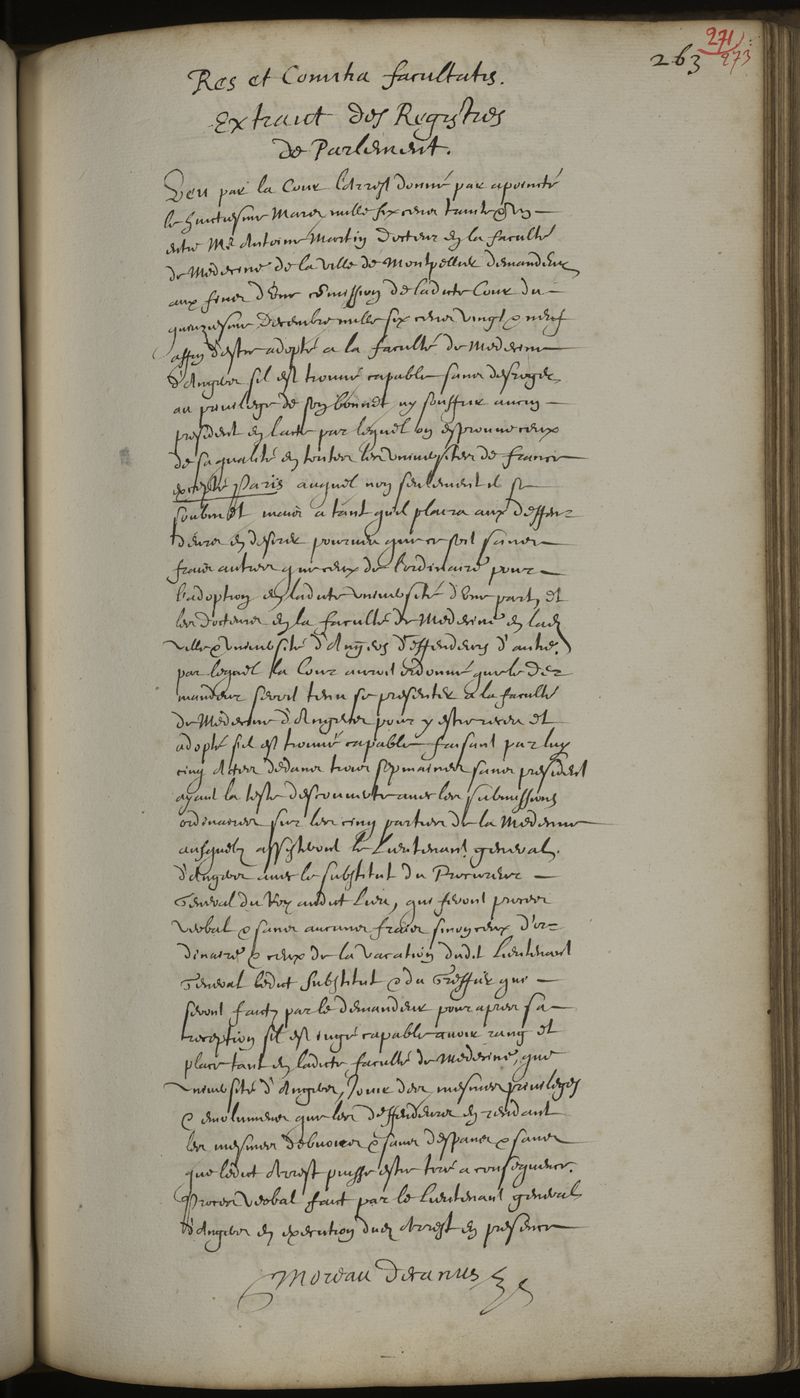 263
271
273
Res et Comitia facultatis.
Extraict des Registres
de Parlement.
Veu par la Cour l'Arrest donné par apoincté
le huictiesme Mars mille six cens trante & un
entre Me Antoine Martin Docteur en la faculté
de Medecine de la ville de Montpellier demandeur
aux fines d'une comission de ladicte Cour du
quinziesme Decembre mille six cens vingt & neuf
affin d'estre adopté a la faculté de Medecine
d'Angers sil est trouvé capable sans desroger
au privilege de son bonnet ny souffrir aucun
president en l'acte par lequel on esprouve ceux
de sa qualité en toutes les universites de france
excepté Paris auquel non seulement il se
soubmet mais a tant quil plaira aux deffen=
deurs en desirer pourveu que ce soit sans
fraiz autres que ceux de l'ordinaire pour
l'adoption en ladicte université d'une part, et
les docteurs en la faculté de Medecine en lad
ville & université d'Angers deffendeurs d'autre.
par lequel la Cour auroit ordonné que le de=
mandeur seroit tenu se presenter a la faculté
de Medecine d'Angers pour y estre receu et
adopté sil est trouvé capable faisant par luy
cinq Actes dedans trois sepmaines sans president
ayant la teste descouverte avec les submissions
ordinaires sur les cinq parties de la Medecine
ausquelz assisteront le Lieutenant general
d'Angers avec le substitut du Procureur
General du Roy audict lieu, qui feront proces
verbal & sans aucuns fraiz sinon ceux d'or=
dinaire & ceux de la vacation dudit Lieutenant
General ledict substitut & du Greffier que
seront faictz par le demandeur pour apres sa
reception sil est jugé capable avoir rang et
place tant en ladicte faculté de Medecine, que
université d'Angers, jouir des mesmes privileges
& emolumens que les deffendeurs en rendant
les mesmes debvoirs & sans despans & sans
que ledict Arrest puisse estre tiré a consequence.
Proces verbal faict par le Lieutenant general
d'Angers en execution dud Arrest en presence
Moreau Decanus